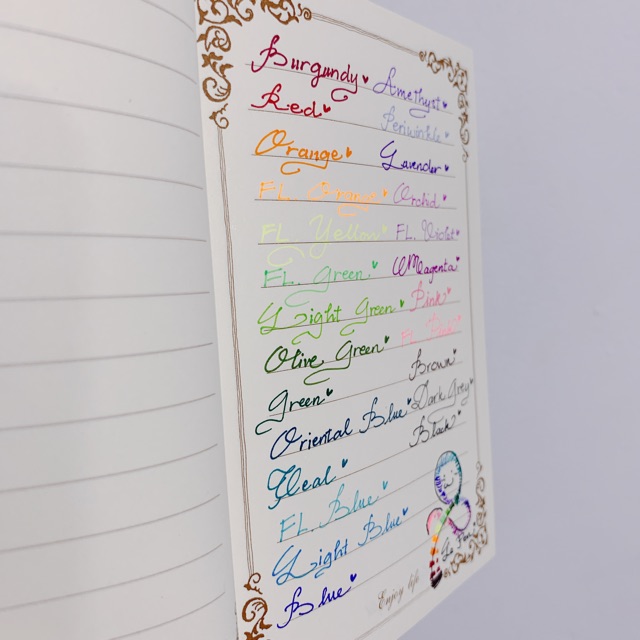 Burgundy
Red
Orange
FL. Orange
FL. Yellow
FL. Green
Light Green
Olive Green
Green
Oriental Blue
Teal
FL. Blue
Light Blue
Blue
Amethyst
Periwinkle
Lavender
Orchid
FL. Violet
Magenta
Pink
FL. Pink
Brown
Dark Grey
Black
Enjoy life